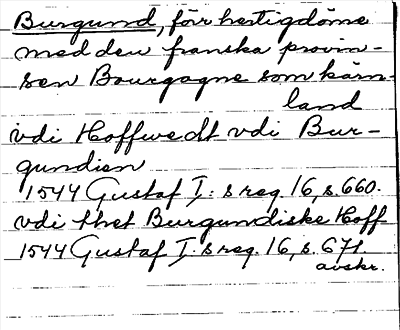 Burgund, förr hertigdöme
med den franska provin-
sen Bourgogne som kärn-
land
vdi Hoffwedt vdi Bur-
gundien
1544 Gustaf I: s reg. 16, s. 660.
vdi thet Burgundiske Hoff
1544 Gustaf I: s reg. 16, s. 671
avskr.